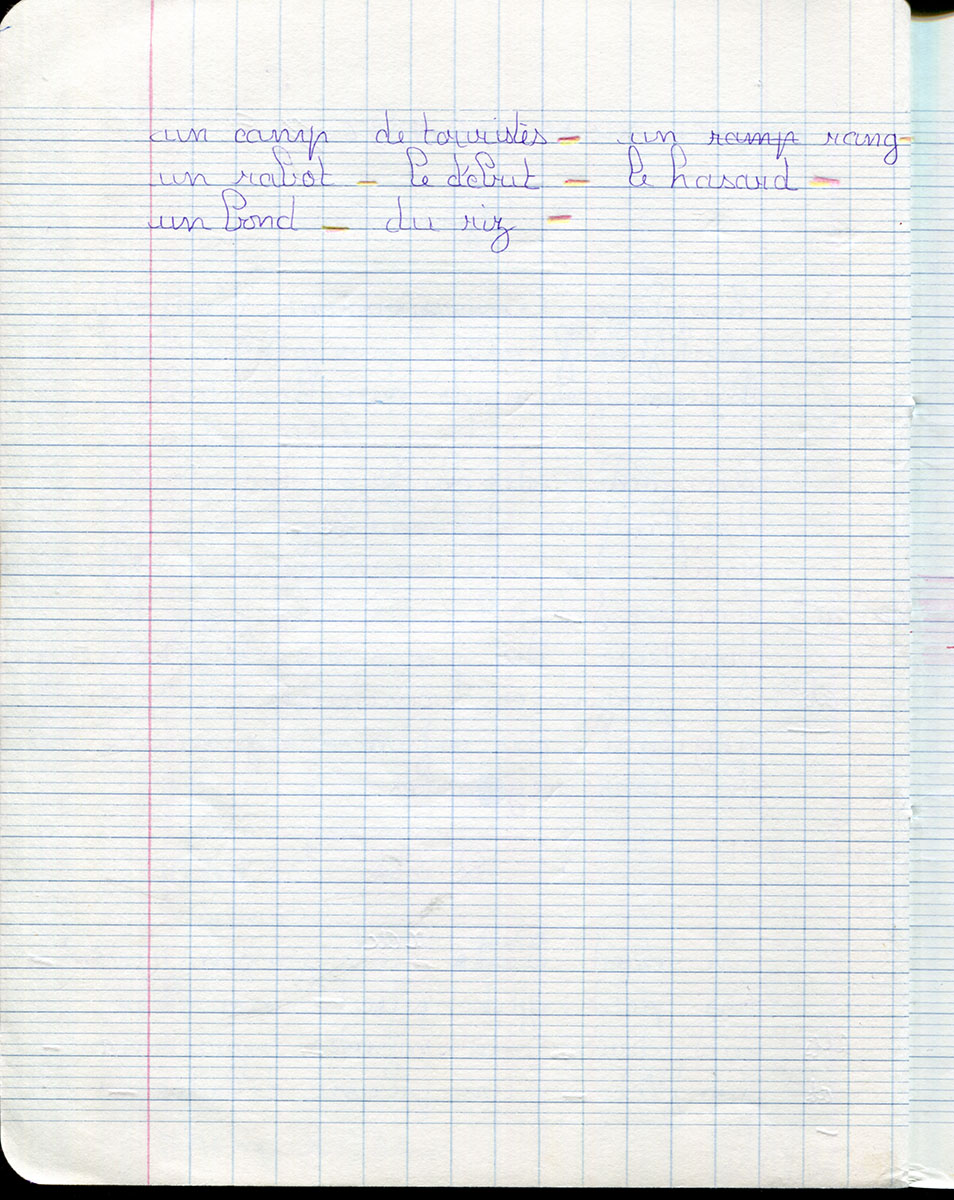 un camp de touristes - un ramp rang -
un rabot - le début - le hasard -
un bond - du riz -